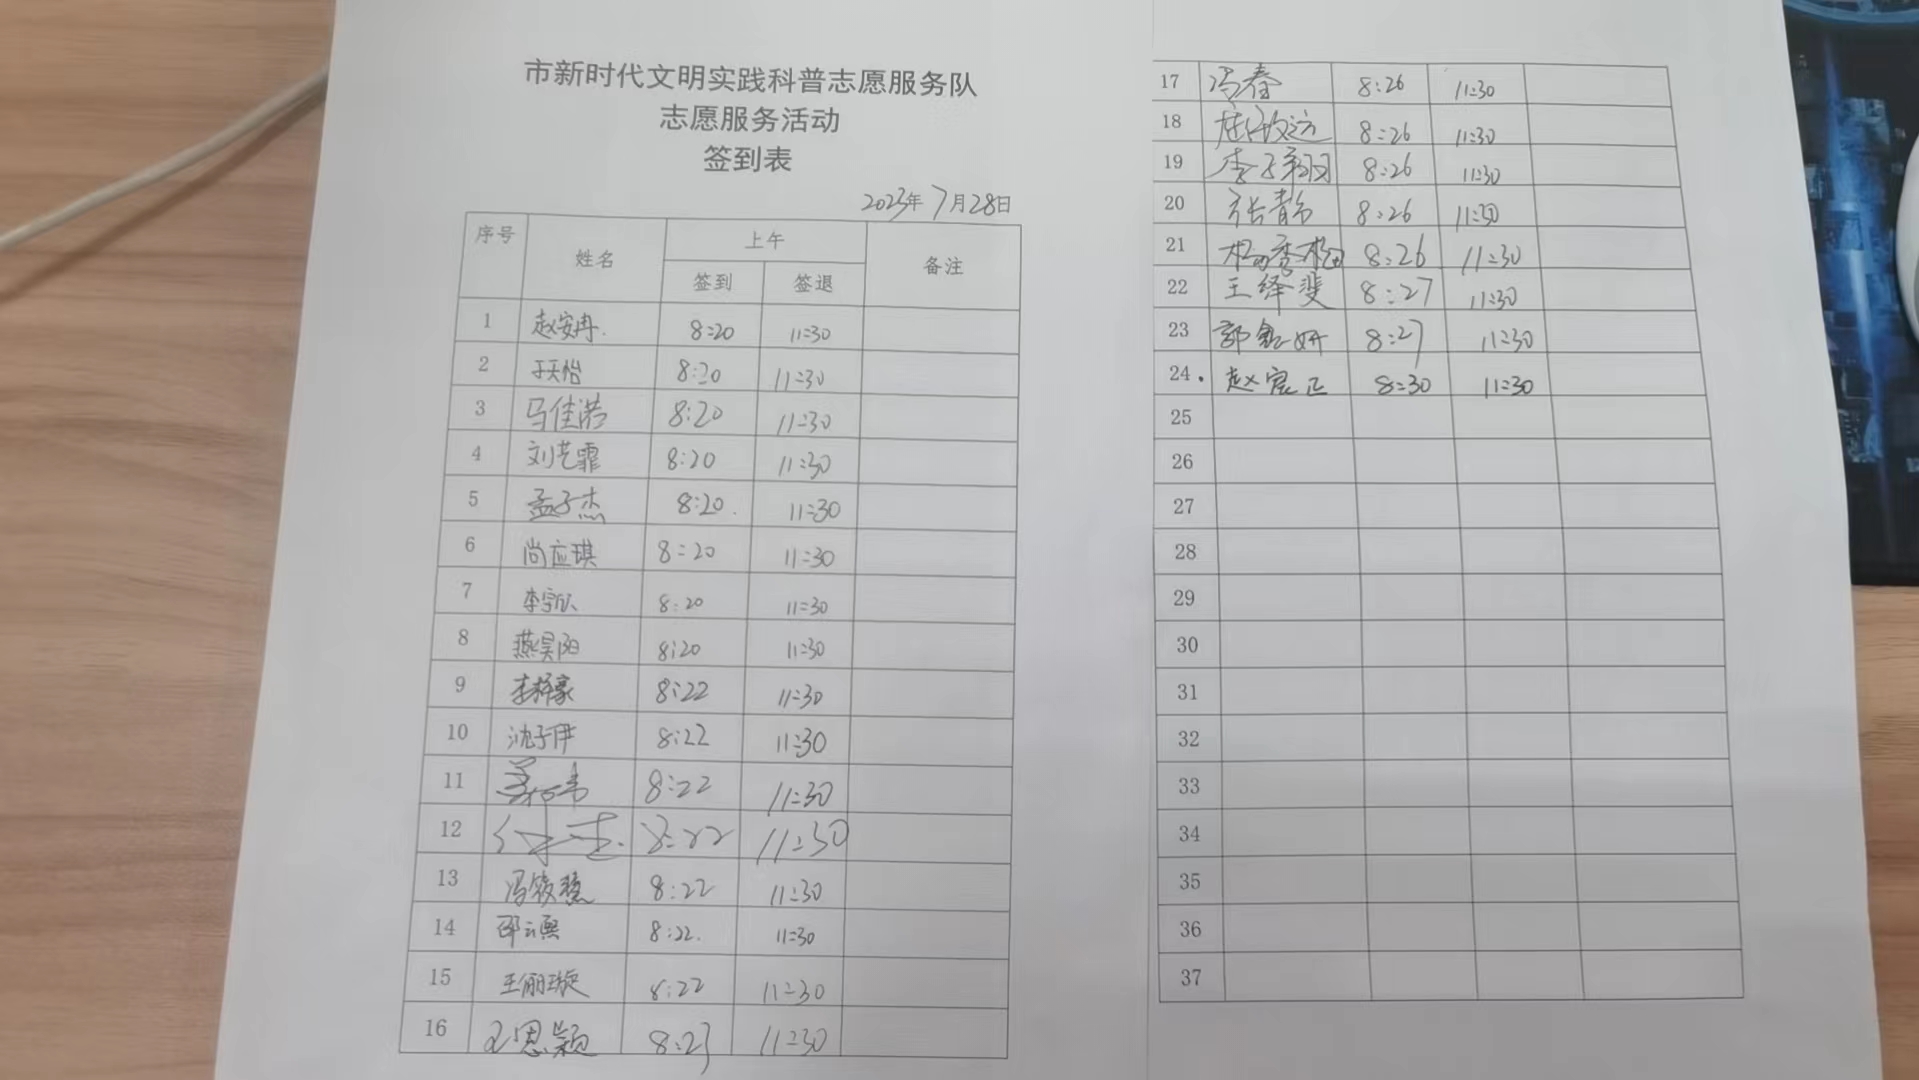 市新时代文明实践科普志愿服务队
志愿服务活动
签到表
2023年7月28日
序号 姓名 上午 备注
签到 签退
1 赵安冉. 8:20 11:30
2 于天怡 8:20 11:30
3 马佳潞 8:20 11:30
4 刘艺霏 8:20 11:30
5 孟子杰 8:20. 11:30
6 尚应琪 8:20 11:30
7 李宇欣 8:20 11:30
8 燕昊阳 8:20 11:30
9 李梓豪 8:22 11:30
10 沈子伊 8:22 11:30
11 8:22 11:30
12 8:22 11:30
13 冯筱慧 8:22 11:30
14 邵云熙 8:22. 11:30
15 王俪璇 8:22 11:30
16 王恩颖 8:23 11:30
17 冯春 8:26 11:30
18 8:26 11:30
19 李子翔 8:26 11:30
20 张青 8:26 11:30
21 杨季 8:26 11:30
22 王绎斐 8:27 11:30
23 郭 妍 8:27 11:30
24. 赵宸正 8:30 11:30
25
26
27
28
29
30
31
32
33
34
35
36
37